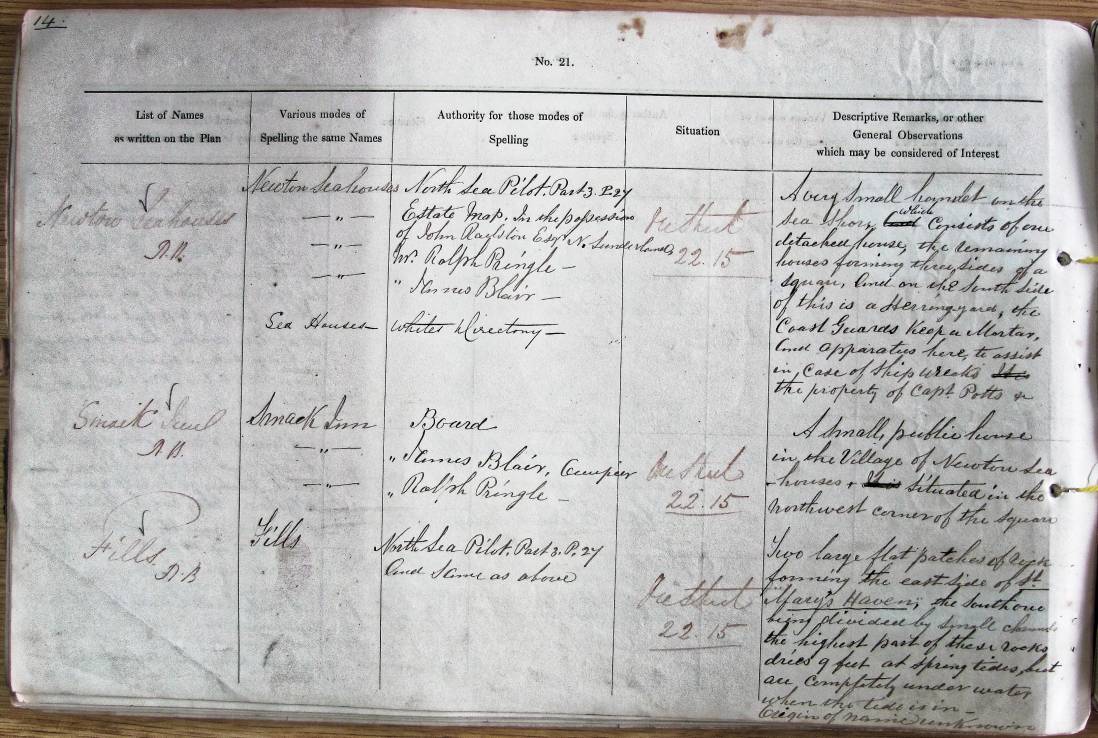 14.
No. 21.
List of Names
as written on the Plan
Various modes of
Spelling the same Names
Authority for those modes of
Spelling
Situation
Descriptive Remarks, or other
General Observations
which may be considered of Interest
Newton Seahouses
Newton Seahouses
North Sea Pilot. Part 3. P. 27
— „ —
Estate Map. In the possession
of John Raylston Esqr. N. Sunderland,
— „ —
Mr. Ralph Pringle —
— „ —
" James Blair —
Sea Houses —
Whites Directory —
22.15
A very small hamlet on the
Sea Shore, which Consists of one
detached house, the remaining
houses forming three sides of a
Square, and on the South Side
of this is a Herring yard, the
Coast Guards Keep a Mortar,
and apparatus here, to assist
in, Case of Ship wrecks
the property of Capt. Potts &
Smack Inn
Smack Inn
Board
— „ —
" James Blair, Occupier
— „ —
" Ralph Pringle —
22.15
A Small, public house
in the Village of Newton Sea
-houses, Situated in the
Northwest corner of the Square
Fills
Fills
North Sea Pilot. Part 3. P. 27
and Same as above
22.15
Two large flat patches of
forming the east side of St.
Mary's Haven; the South one
being divided by small
the highest part of these rocks
dries 9 feet at Spring tides, but
are completely under water
when the tide is in —
Origin of name unknown